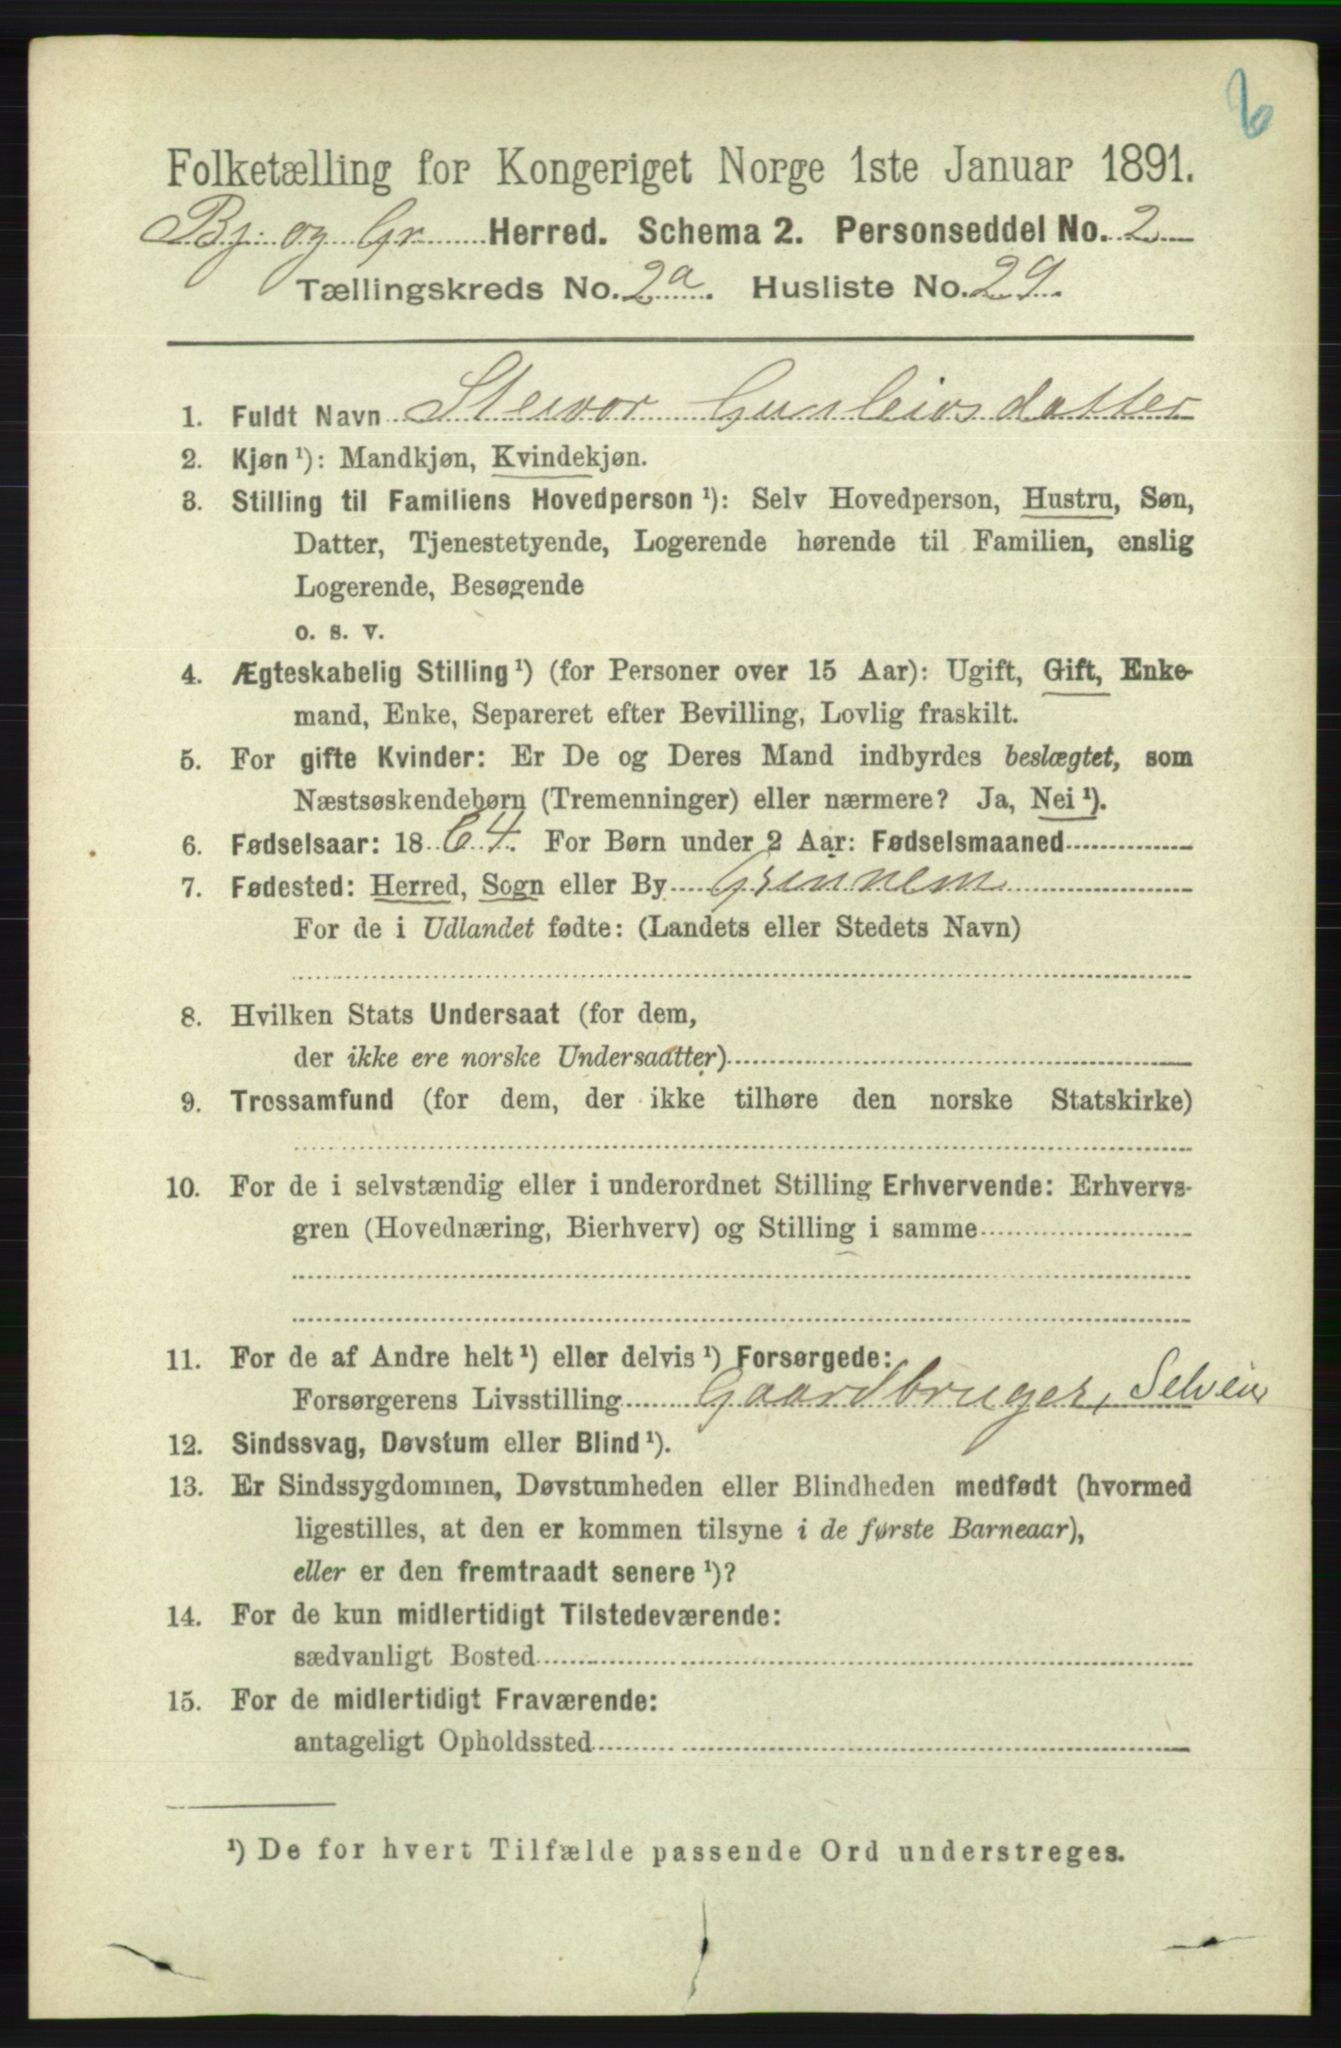 6
Folketælling for Kongeriget Norge 1ste Januar 1891.
Bj. og Gr. Herred. Schema 2. Personseddel No. 2
Tællingskreds No. 2a. Husliste No. 29.
1. Fuldt Navn Steivor Gunleivsdatter
2. Kjøn ¹): Mandkjøn, Kvindekjøn.
3. Stilling til Familiens Hovedperson ¹): Selv Hovedperson, Hustru, Søn,
Datter, Tjenestetyende, Logerende hørende til Familien, enslig
Logerende, Besøgende
o. s. v.
4. Ægteskabelig Stilling ¹) (for Personer over 15 Aar): Ugift, Gift, Enke-
mand, Enke, Separeret efter Bevilling, Lovlig fraskilt.
5. For gifte Kvinder: Er De og Deres Mand indbyrdes beslægtet, som
Næstsøskendebørn (Tremenninger) eller nærmere? Ja, Nei ¹).
6. Fødselsaar: 1864. For Børn under 2 Aar: Fødselsmaaned
7. Fødested: Herred, Sogn eller By Grinnem
For de i Udlandet fødte: (Landets eller Stedets Navn)
8. Hvilken Stats Undersaat (for dem,
der ikke ere norske Undersaatter)
9. Trossamfund (for dem, der ikke tilhøre den norske Statskirke)
10. For de i selvstændig eller i underordnet Stilling Erhvervende: Erhvervs-
gren (Hovednæring, Bierhverv) og Stilling i samme
11. For de af Andre helt ¹) eller delvis ¹) Forsørgede:
Forsørgerens Livsstilling Gaardbruger, Selveier
12. Sindssvag, Døvstum eller Blind ¹).
13. Er Sindssygdommen, Døvstumheden eller Blindheden medfødt (hvormed
ligestilles, at den er kommen tilsyne i de første Barneaar),
eller er den fremtraadt senere ¹)?
14. For de kun midlertidigt Tilstedeværende:
sædvanligt Bosted
15. For de midlertidigt Fraværende:
antageligt Opholdssted
¹) De for hvert Tilfælde passende Ord understreges.